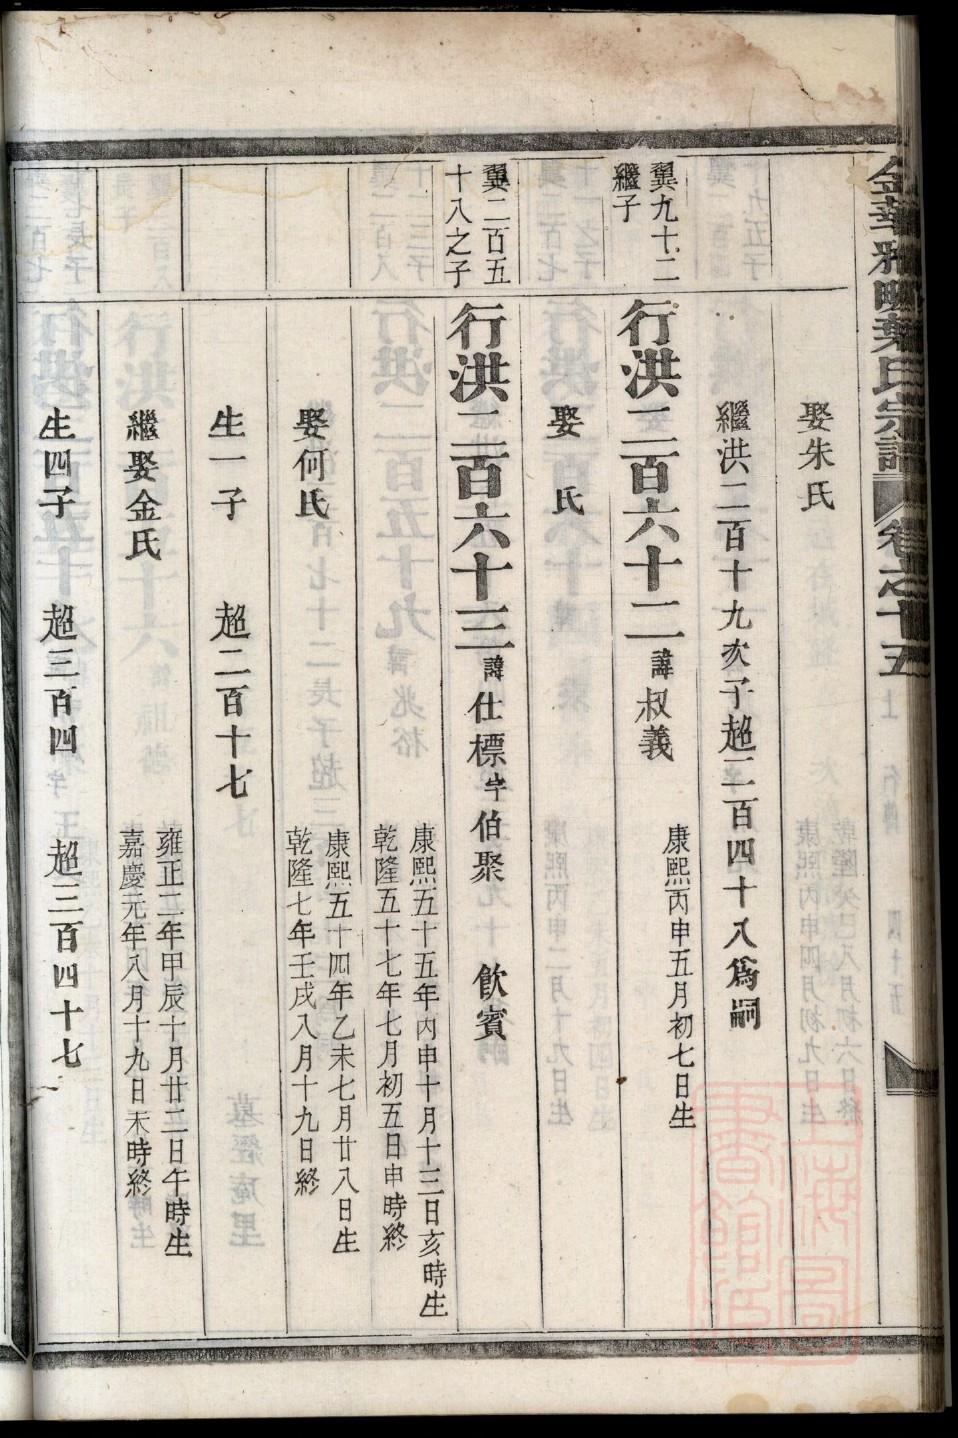 金華雅畈葉氏宗譜 卷之十五
娶朱氏
繼洪二百十九次子超二百四十八為嗣
翼九十二繼子
行洪二百六十二 諱叔義
康熙丙申五月初七日生
娶 氏
翼二百五十八之子
行洪二百六十三 諱仕標 字伯聚 飲賓
康熙五十五年丙申十月十三日亥時生
乾隆五十七年七月初五日申時終
娶何氏
康熙五十四年乙未七月廿八日生
乾隆七年壬戌八月十九日終
生一子 超二百十七
繼娶金氏
雍正二年甲辰十月廿二日午時生
嘉慶元年八月十九日未時終
生四子 超三百四 超三百四十七